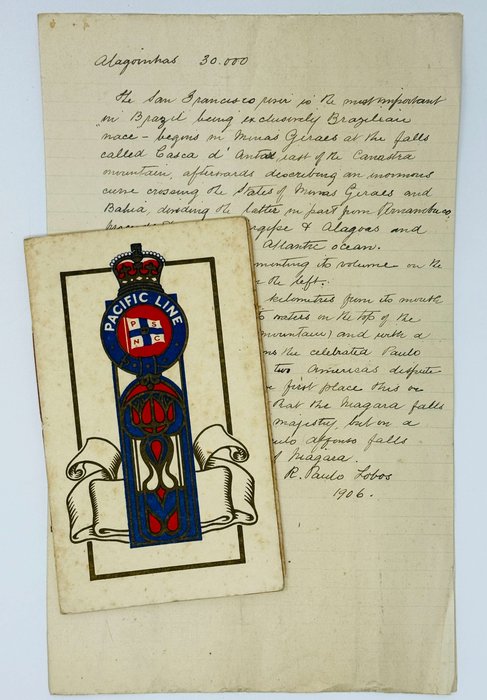 Alagoinhas 30.000
The San Francisco river is the most important
in Brazil being exclusively Brazilian
race - begins in Minas Geraes at the falls
called Casca d' Antas, east of the Canastra
mountain, afterwards describing an inormous
curve crossing the States of Minas Geraes and
Bahia, dividing the latter in part from Pernambuco,
& Alagoas and
Atlantic ocean.
its volume on the
the left.
kilometres from its mouth
waters on the top of the
mountain) and with a
the celebrated Paulo
two Americas dispute
first place this or
that the Niagara falls
majesty, but on a
affonso falls
Niagara.
R. Paulo Lobos
1906.
PACIFIC LINE
P S
N C